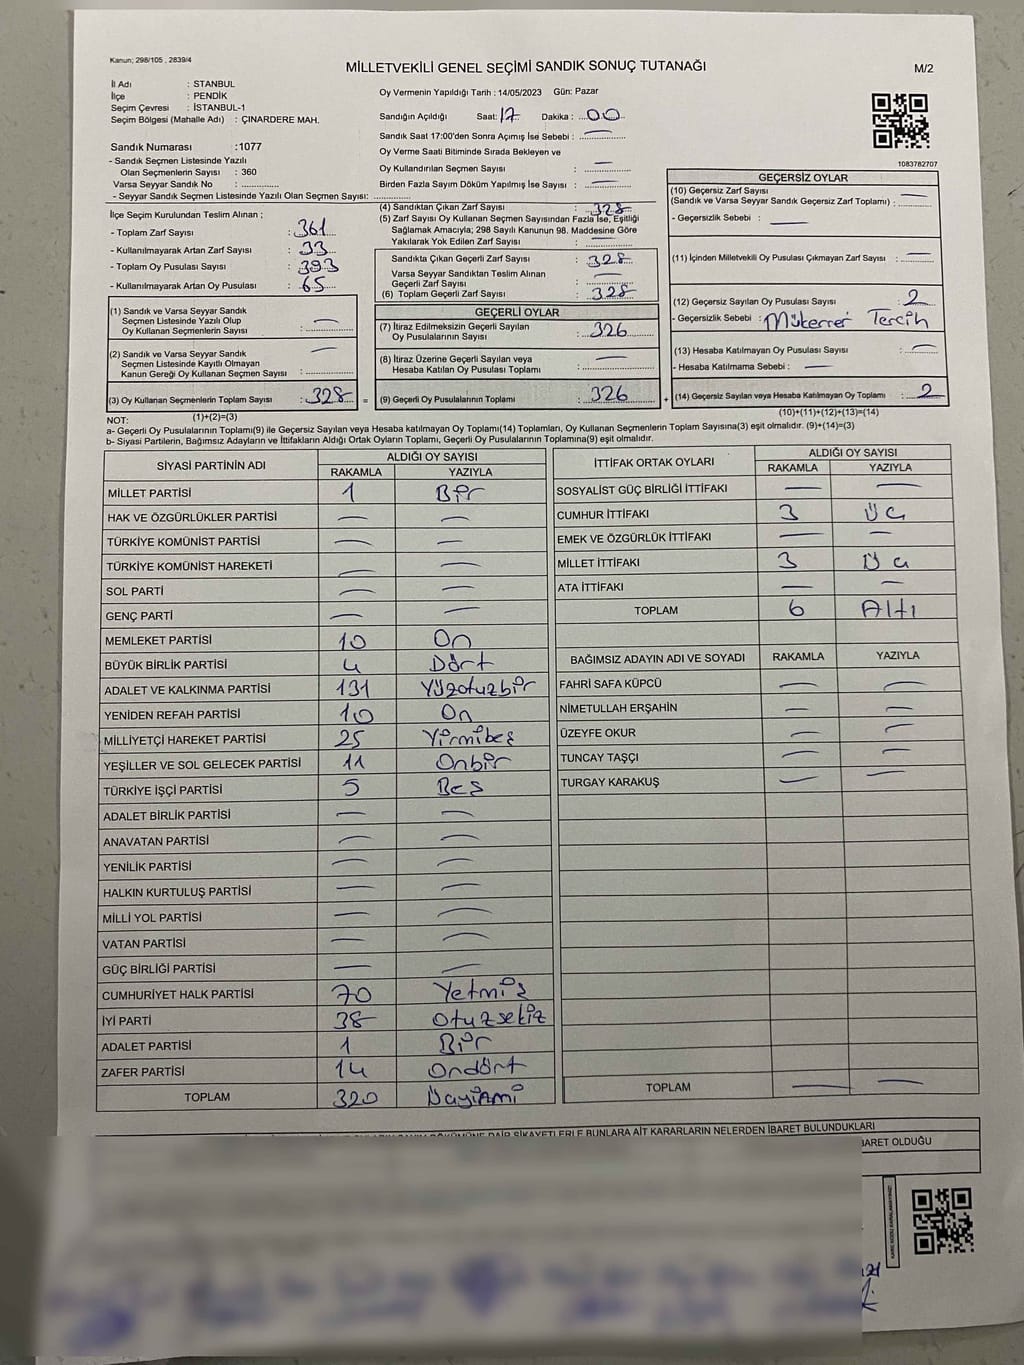 Kanun; 298/105 , 2839/4
MİLLETVEKİLİ GENEL SEÇİMİ SANDIK SONUÇ TUTANAĞI
M/2
İl Adı : STANBUL
İlçe : PENDİK
Seçim Çevresi : İSTANBUL-1
Seçim Bölgesi (Mahalle Adı) : ÇINARDERE MAH.
Sandık Numarası :1077
- Sandık Seçmen Listesinde Yazılı
Olan Seçmenlerin Sayısı : 360
Varsa Seyyar Sandık No : ..............
- Seyyar Sandık Listesinde Yazılı Olan Seçmen Sayısı: ..............
Oy Vermenin Yapıldığı Tarih : 14/05/2023 Gün: Pazar
Sandığın Açıldığı Saat: 17 Dakika : 00
Sandık Saat 17:00'den Sonra Açımış İse Sebebi : —
Oy Verme Saati Bitiminde Sırada Bekleyen ve
Oy Kullandırılan Seçmen Sayısı —
Birden Fazla Sayım Döküm Yapılmış İse Sayısı : —
1083782707
İlçe Seçim Kurulundan Teslim Alınan ;
- Toplam Zarf Sayısı : 361
- Kullanılmayarak Artan Zarf Sayısı : 33
- Toplam Oy Pusulası Sayısı : 393
- Kullanılmayarak Artan Oy Pusulası : 65
(1) Sandık ve Varsa Seyyar Sandık
Seçmen Listesinde Yazılı Olup
Oy Kullanan Seçmenlerin Sayısı : —
(2) Sandık ve Varsa Seyyar Sandık
Seçmen Listesinde Kayıtlı Olmayan
Kanun Gereği Oy Kullanan Seçmen Sayısı : —
(3) Oy Kullanan Seçmenlerin Toplam Sayısı : 328 =
(1)+(2)=(3)
(4) Sandıktan Çıkan Zarf Sayısı : 328
(5) Zarf Sayısı Oy Kullanan Seçmen Sayısından Fazla İse, Eşitliği
Sağlamak Amacıyla; 298 Sayılı Kanunun 98. Maddesine Göre
Yakılarak Yok Edilen Zarf Sayısı : —
Sandıkta Çıkan Geçerli Zarf Sayısı : 328
Varsa Seyyar Sandıktan Teslim Alınan
Geçerli Zarf Sayısı : —
(6) Toplam Geçerli Zarf Sayısı : 328
GEÇERLİ OYLAR
(7) İtiraz Edilmeksizin Geçerli Sayılan
Oy Pusulalarının Sayısı : 326
(8) İtiraz Üzerine Geçerli Sayılan veya
Hesaba Katılan Oy Pusulası Toplamı : —
(9) Geçerli Oy Pusulalarının Toplamı : 326 +
GEÇERSİZ OYLAR
(10) Geçersiz Zarf Sayısı
(Sandık ve Varsa Seyyar Sandık Geçersiz Zarf Toplamı) : —
- Geçersizlik Sebebi : —
(11) İçinden Milletvekili Oy Pusulası Çıkmayan Zarf Sayısı : —
(12) Geçersiz Sayılan Oy Pusulası Sayısı : 2
- Geçersizlik Sebebi : Mükerrer Tercih
(13) Hesaba Katılmayan Oy Pusulası Sayısı : —
- Hesaba Katılmama Sebebi : —
(14) Geçersiz Sayılan veya Hesaba Katılmayan Oy Toplamı : 2
(10)+(11)+(12)+(13)=(14)
NOT:
a- Geçerli Oy Pusulalarının Toplamı(9) ile Geçersiz Sayılan veya Hesaba katılmayan Oy Toplamı(14) Toplamları, Oy Kullanan Seçmenlerin Toplam Sayısına(3) eşit olmalıdır. (9)+(14)=(3)
b- Siyasi Partilerin, Bağımsız Adayların ve İttifakların Aldığı Ortak Oyların Toplamı, Geçerli Oy Pusulalarının Toplamına(9) eşit olmalıdır.
SİYASİ PARTİNİN ADI ALDIĞI OY SAYISI
RAKAMLA YAZIYLA
MİLLET PARTİSİ 1 Bir
HAK VE ÖZGÜRLÜKLER PARTİSİ — —
TÜRKİYE KOMÜNİST PARTİSİ — —
TÜRKİYE KOMÜNİST HAREKETİ — —
SOL PARTİ — —
GENÇ PARTİ — —
MEMLEKET PARTİSİ 10 On
BÜYÜK BİRLİK PARTİSİ 4 Dört
ADALET VE KALKINMA PARTİSİ 131 Yüzotuzbir
YENİDEN REFAH PARTİSİ 10 On
MİLLİYETÇİ HAREKET PARTİSİ 25 Yirmibeş
YEŞİLLER VE SOL GELECEK PARTİSİ 11 Onbir
TÜRKİYE İŞÇİ PARTİSİ 5 Beş
ADALET BİRLİK PARTİSİ — —
ANAVATAN PARTİSİ — —
YENİLİK PARTİSİ — —
HALKIN KURTULUŞ PARTİSİ — —
MİLLİ YOL PARTİSİ — —
VATAN PARTİSİ — —
GÜÇ BİRLİĞİ PARTİSİ — —
CUMHURİYET HALK PARTİSİ 70 Yetmiş
İYİ PARTİ 38 Otuzsekiz
ADALET PARTİSİ 1 Bir
ZAFER PARTİSİ 14 Ondört
TOPLAM 320 Üçyirmi
İTTİFAK ORTAK OYLARI ALDIĞI OY SAYISI
RAKAMLA YAZIYLA
SOSYALİST GÜÇ BİRLİĞİ İTTİFAKI — —
CUMHUR İTTİFAKI 3 Üç
EMEK VE ÖZGÜRLÜK İTTİFAKI — —
MİLLET İTTİFAKI 3 Üç
ATA İTTİFAKI — —
TOPLAM 6 Altı
BAĞIMSIZ ADAYIN ADI VE SOYADI RAKAMLA YAZIYLA
FAHRİ SAFA KÜPCÜ — —
NİMETULLAH ERŞAHİN — —
ÜZEYFE OKUR — —
TUNCAY TAŞÇI — —
TURGAY KARAKUŞ — —
TOPLAM — —
DÖKÜMÜNE DAİR ŞİKAYETLERLE BUNLARA AİT KARARLARIN NELERDEN İBARET BULUNDUKLARI
İBARET OLDUĞU